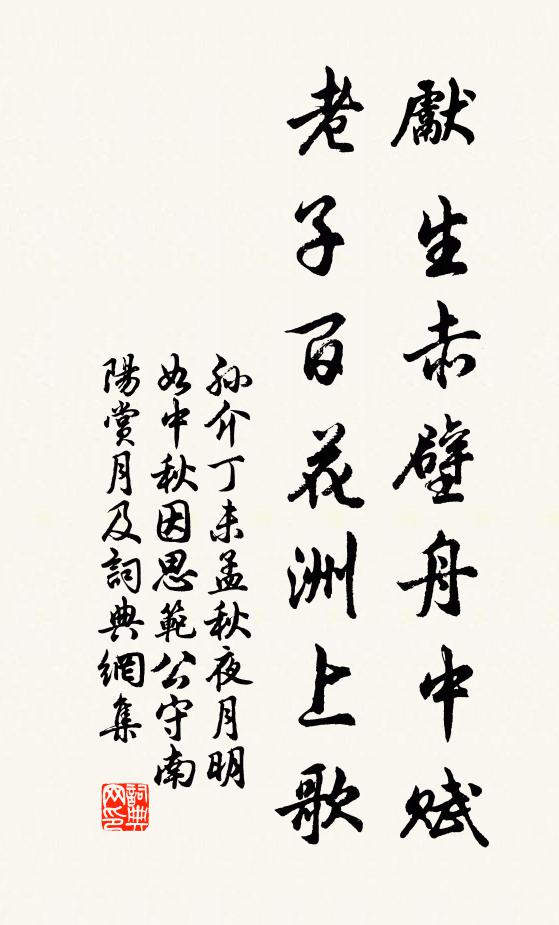 獻生赤壁舟中賦
老子百花洲上歌
孫介丁未孟秋夜月明
如中秋因思範公守南
陽賞月及詞典網集
詞典网印